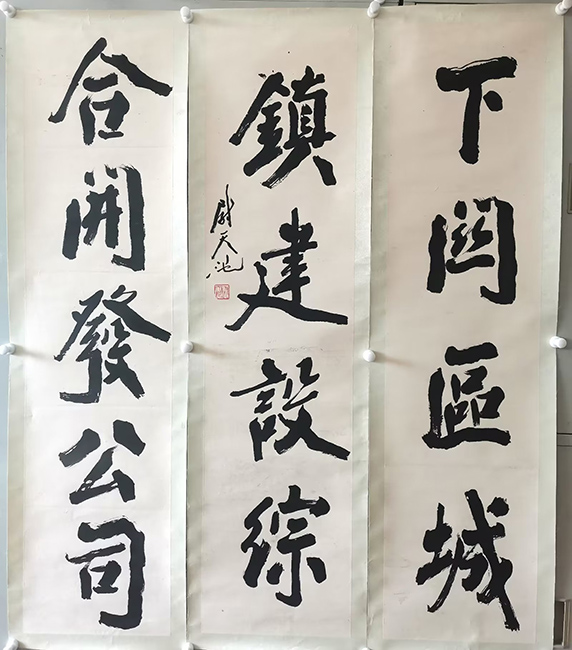 下関區城
鎮建設綜
合開發公司
尉天池